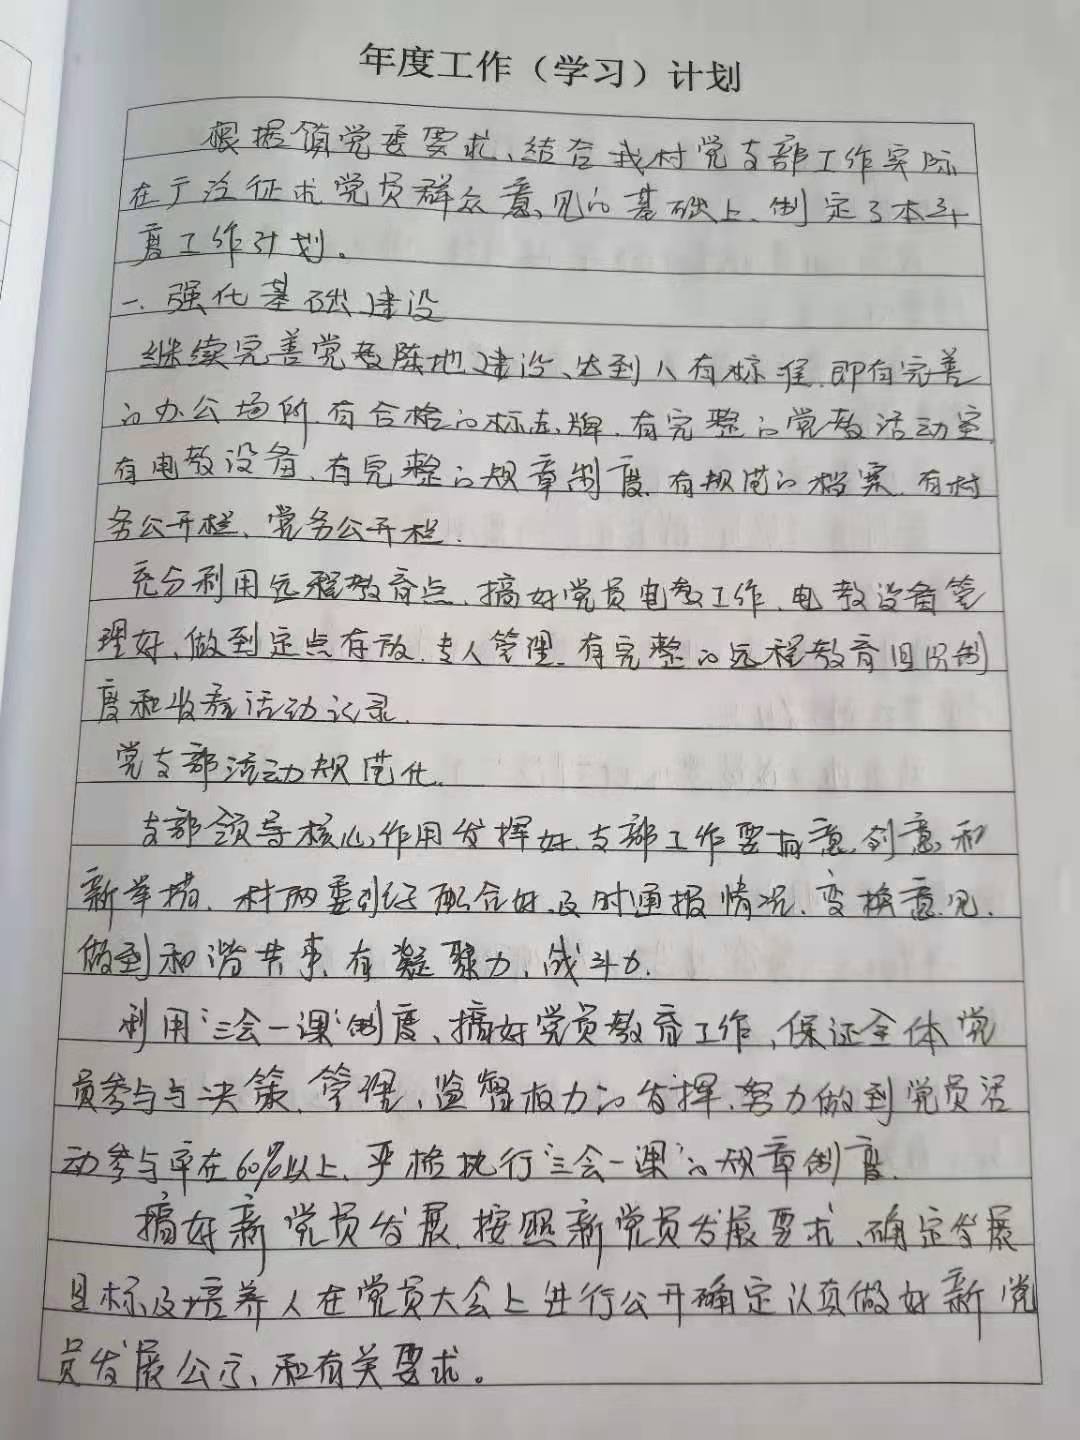 年度工作（学习）计划
根据镇党委要求、结合我村党支部工作实际
在广泛征求党员群众意见的基础上、制定了本年
度工作计划。
一、强化基础建设
继续完善党教阵地建设、达到八有标准、即有完善
的办公场所、有合格的标志牌、有完整的党教活动室、
有电教设备、有完整的规章制度、有规范的档案、有村
务公开栏、党务公开栏.
充分利用远程教育点、搞好党员电教工作、电教设备管
理好、做到定点存放、专人管理、有完整的远程教育制
度和收看活动记录.
党支部活动规范化.
支部领导核心作用发挥好、支部工作要有意、创意和
新举措、村两委班子配合好、及时通报情况、变换意见、
做到和谐共事、有凝聚力、战斗力.
利用“三会一课”制度、搞好党员教育工作、保证全体党
员参与与决策、管理、监督权力的发挥、努力做到党员活
动参与率在60%以上、严格执行“三会一课”的规章制度.
搞好新党员发展、按照新党员发展要求、确定发展
目标及培养人在党员大会上进行公开确定认真做好新党
员发展公示、和有关要求。